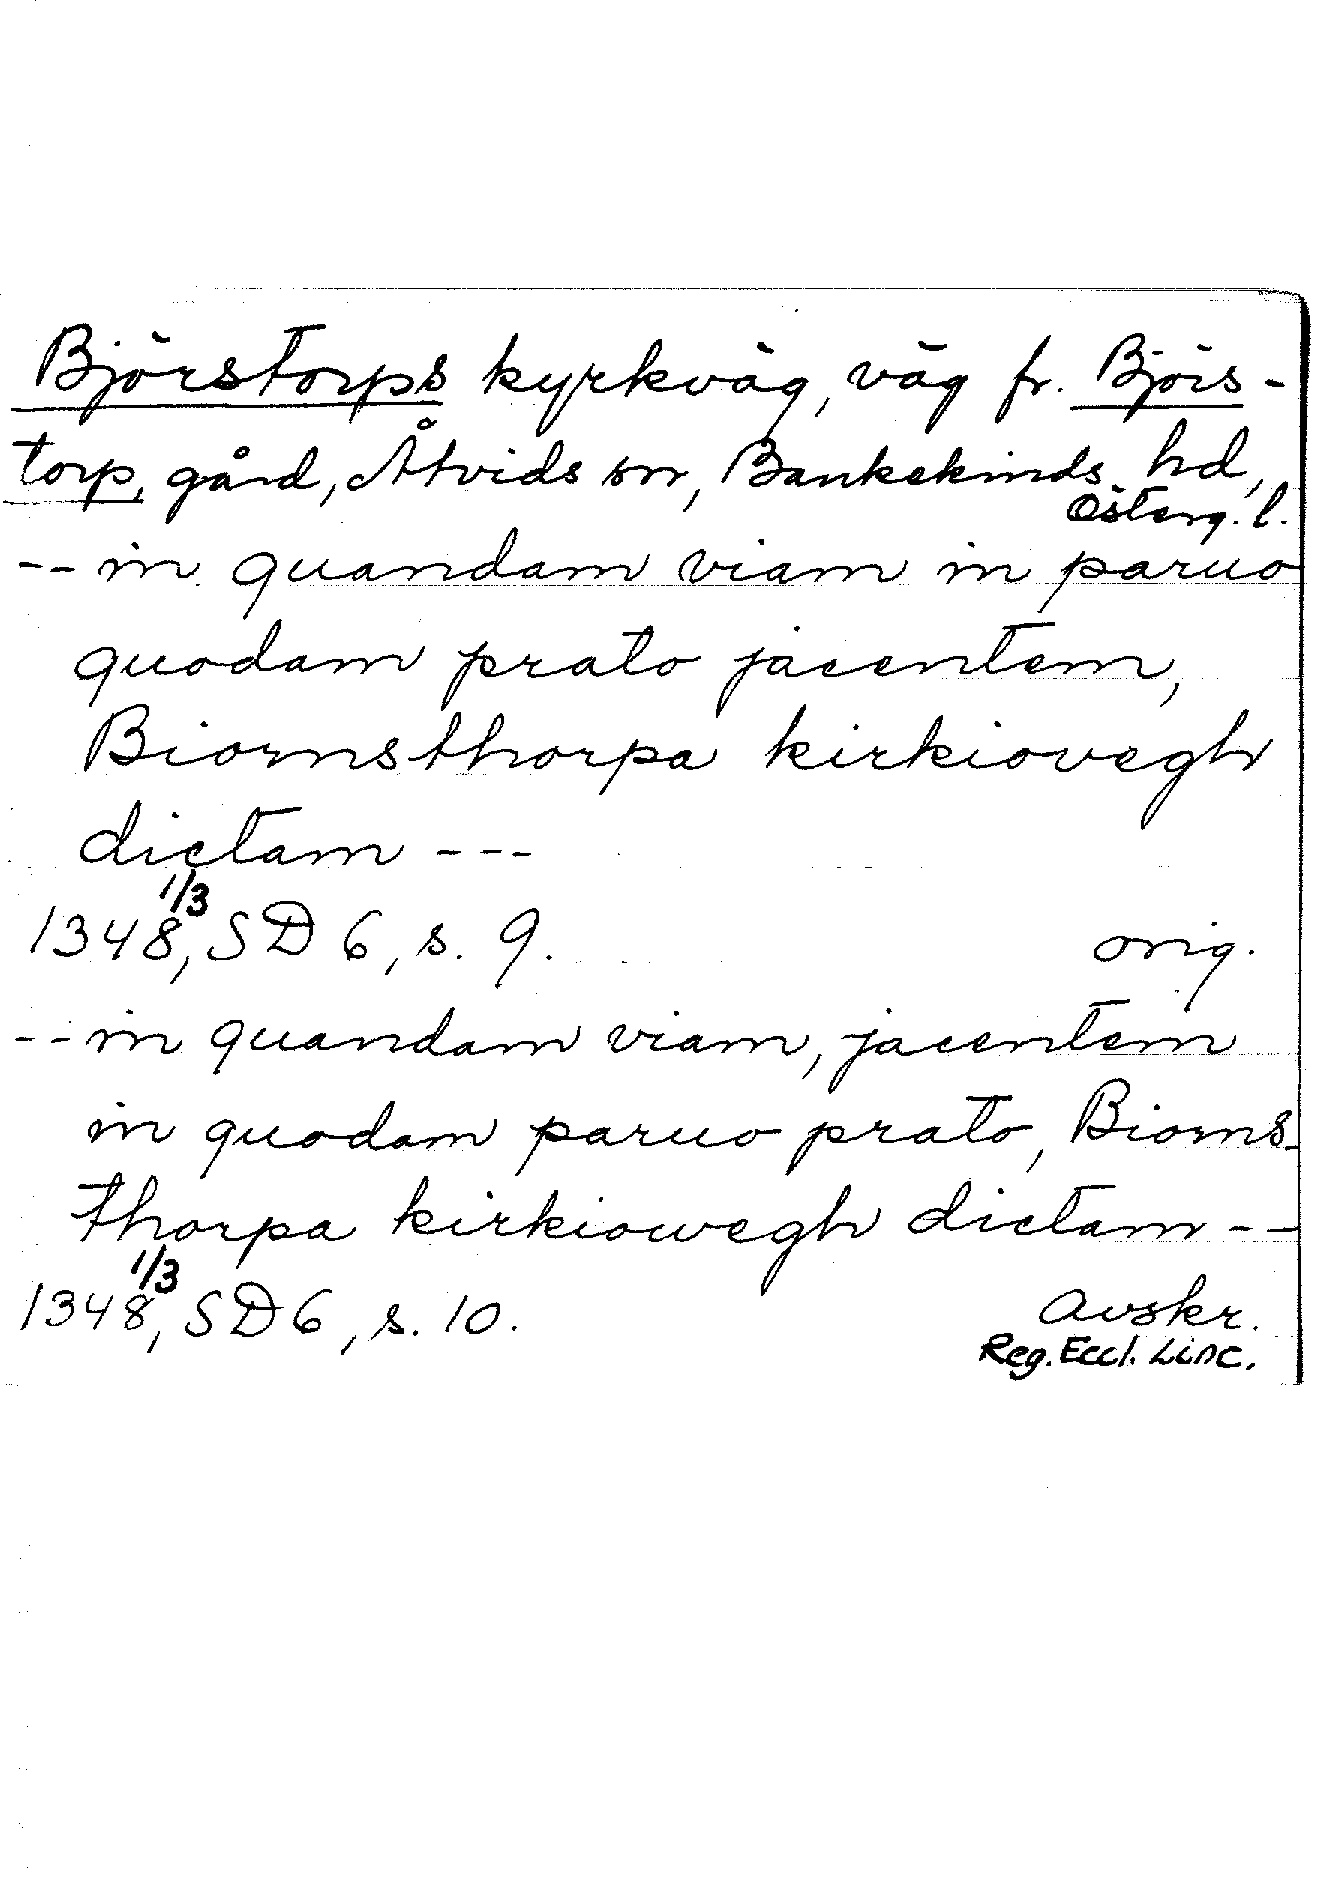 Björstorps kyrkväg, väg fr. Björs-
torp, gård, Åtvids sn, Bankekinds hd,
Österg. l.
-- in quandam viam in paruo
quodam prato jacentem,
Biornsthorpa kirkiovegh
dictam ---
1348 1/3, SD 6, s. 9. orig.
-- in quandam viam, jacentem
in quodam paruo prato, Biorns-
thorpa kirkiowegh dictam --
1348 1/3, SD 6, s. 10. Avskr.
Reg. Eccl. Linc.